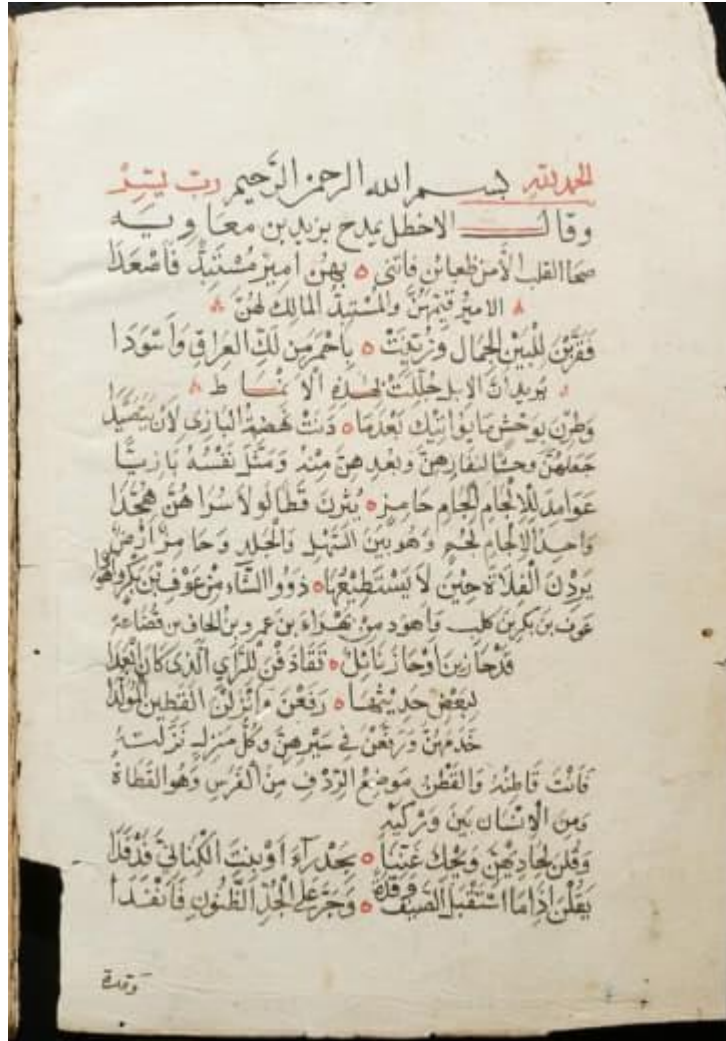 الحمد لله بسم الله الرحمن الرحيم رب يسر
وقال الاخطل يمدح يزيد بن معاوية
صحا القلب الا من ظعائن فاتني ه بهن امير مستبد فاصعدا
الامير قيمهن والمستبد المالك لهن
فقربن للبين الجمال وزينت ه باحمر من لك العراق واسودا
يريد ان الابل جللت بهذه الانماط
وطرن بوحش ما يؤاتيك بعدما ه دنت نهضة البازي لان يتصيدا
جعلهن وحشا لنفارهن وبعدهن منه ومثل نفسه بازيا
عوامد للالجام الجام حامز ه يثرن قطا لولا سراهن هجدا
واحد الالجام لجم وهو بين السهل والجلد وحامز ارض
يردن الفلاة حين لا يستطيعها ه ذوو الشاء من عوف بن بكر واهودا
عوف بن بكر من كلب واهود من بهراء بن عمرو بن الحاف بن قضاعة
نائل ه تقاذفن للراي الذي كان
لبعض حديثها ه رفعن وانزلن القطين المولدا
خدمهن ورفعن في سيرهن وكل منزل نزلته
فانت قاطنه والقطن موضع الردف من الفرس وهو القطاة
ومن الانسان بين وركيه
وقلن لحاديهن ويحك غننا ه بحدراء او بنت الكناني فدفدا
يقلن اذا ما استقبل الصيف وقدة ه وجر على الجد الظنون فانفدا
وقدة